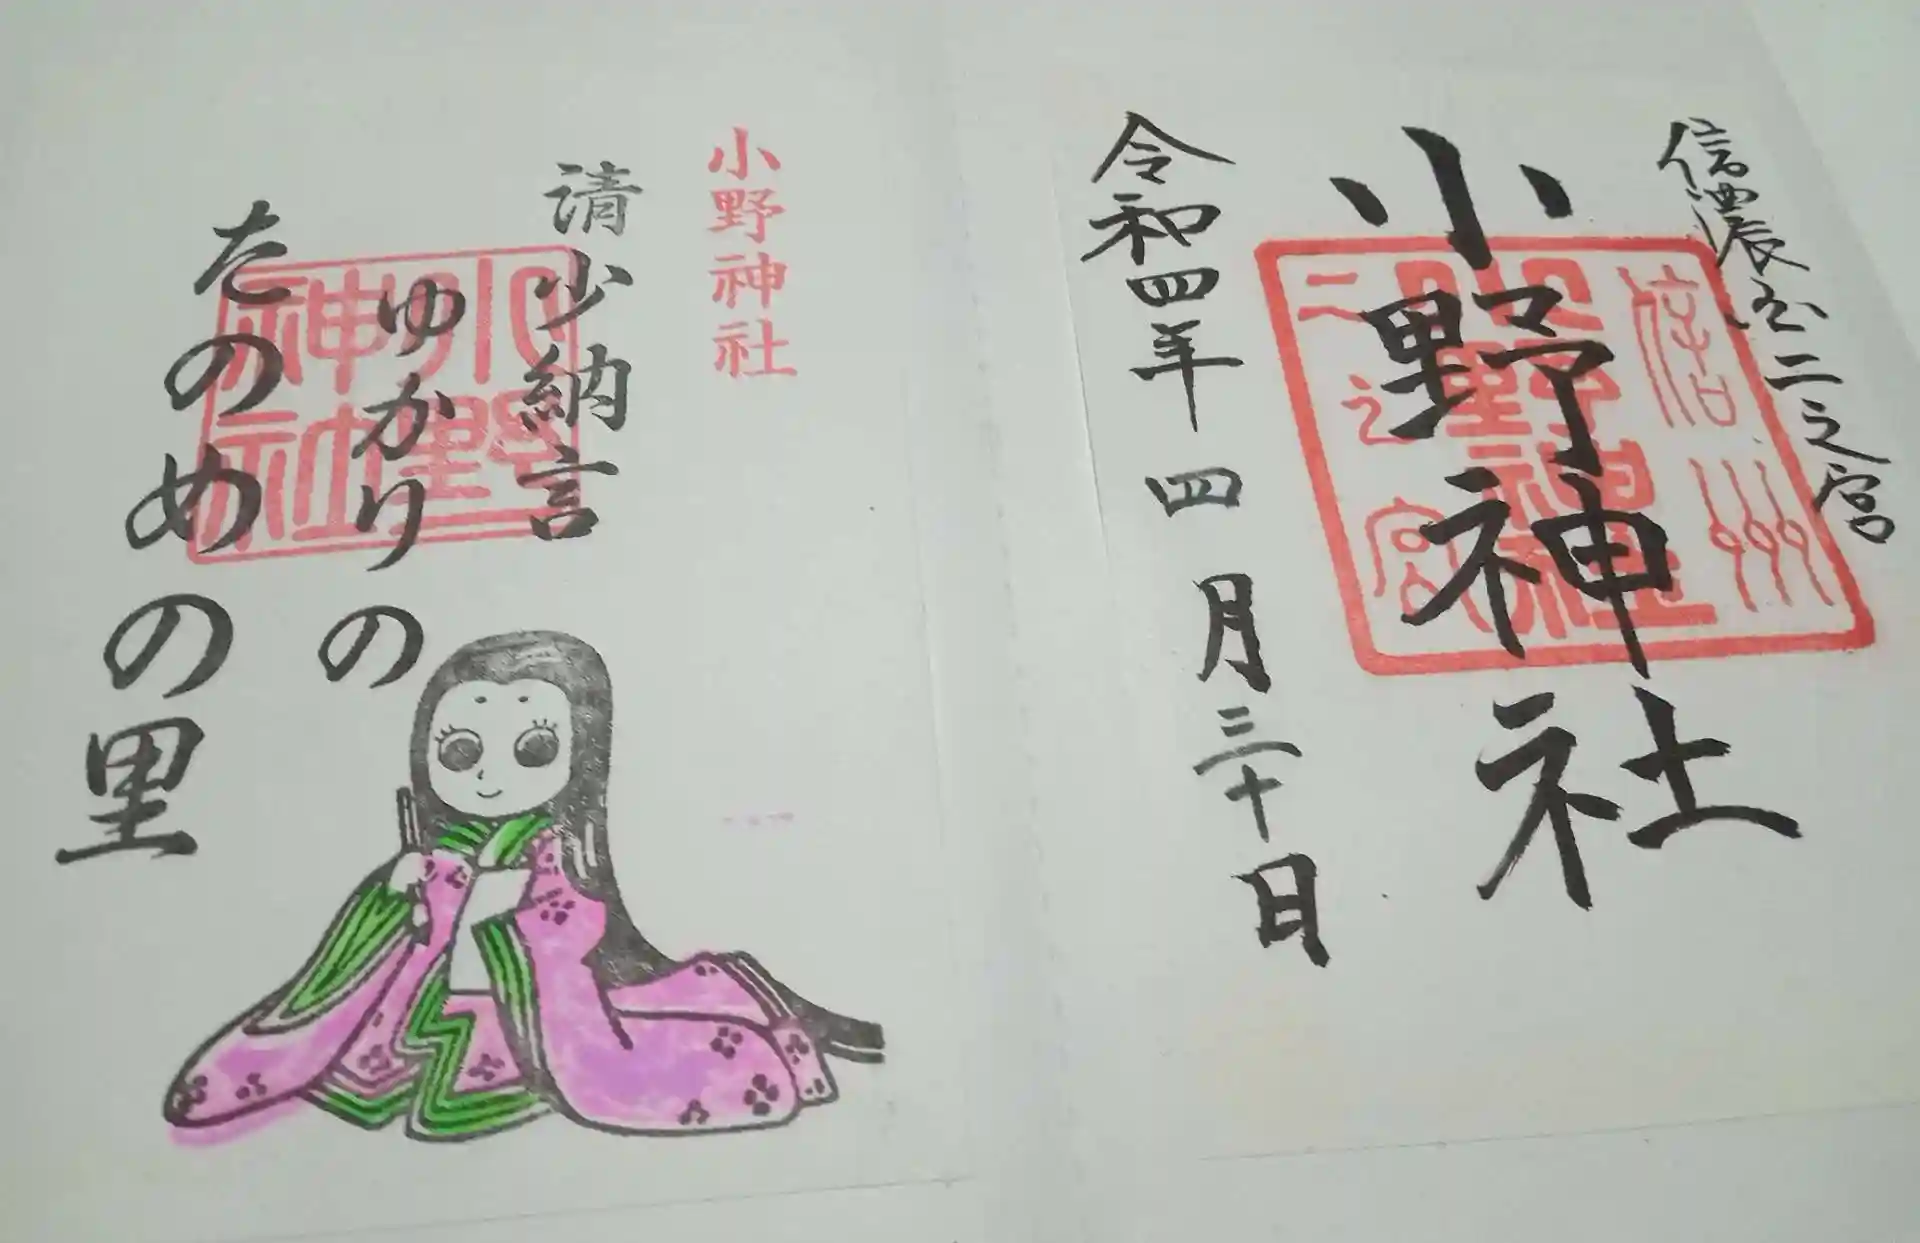 信濃国二之宮
小野神社
信州
小野神社
二之宮
令和四年四月三十日
小野神社
清少納言
ゆかりの
たのめの里
小野
神社